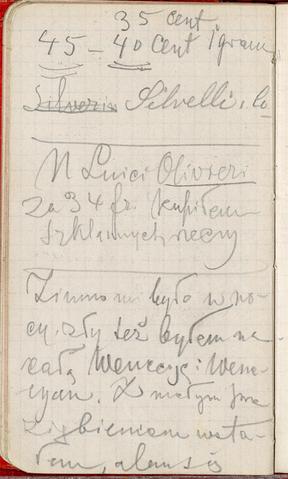 35 cent.
45 – 40 cent 1 gram
Silveri Silvelli, Co
N Luici Olivieri
za 34 fr. kupiłem
szklannych rzeczy
Zimno mi było w no-
cy, zły też byłem na
całą Wenecyę i Wene-
cyan. Z małym prze
ziębieniem wsta-
łem, alem się